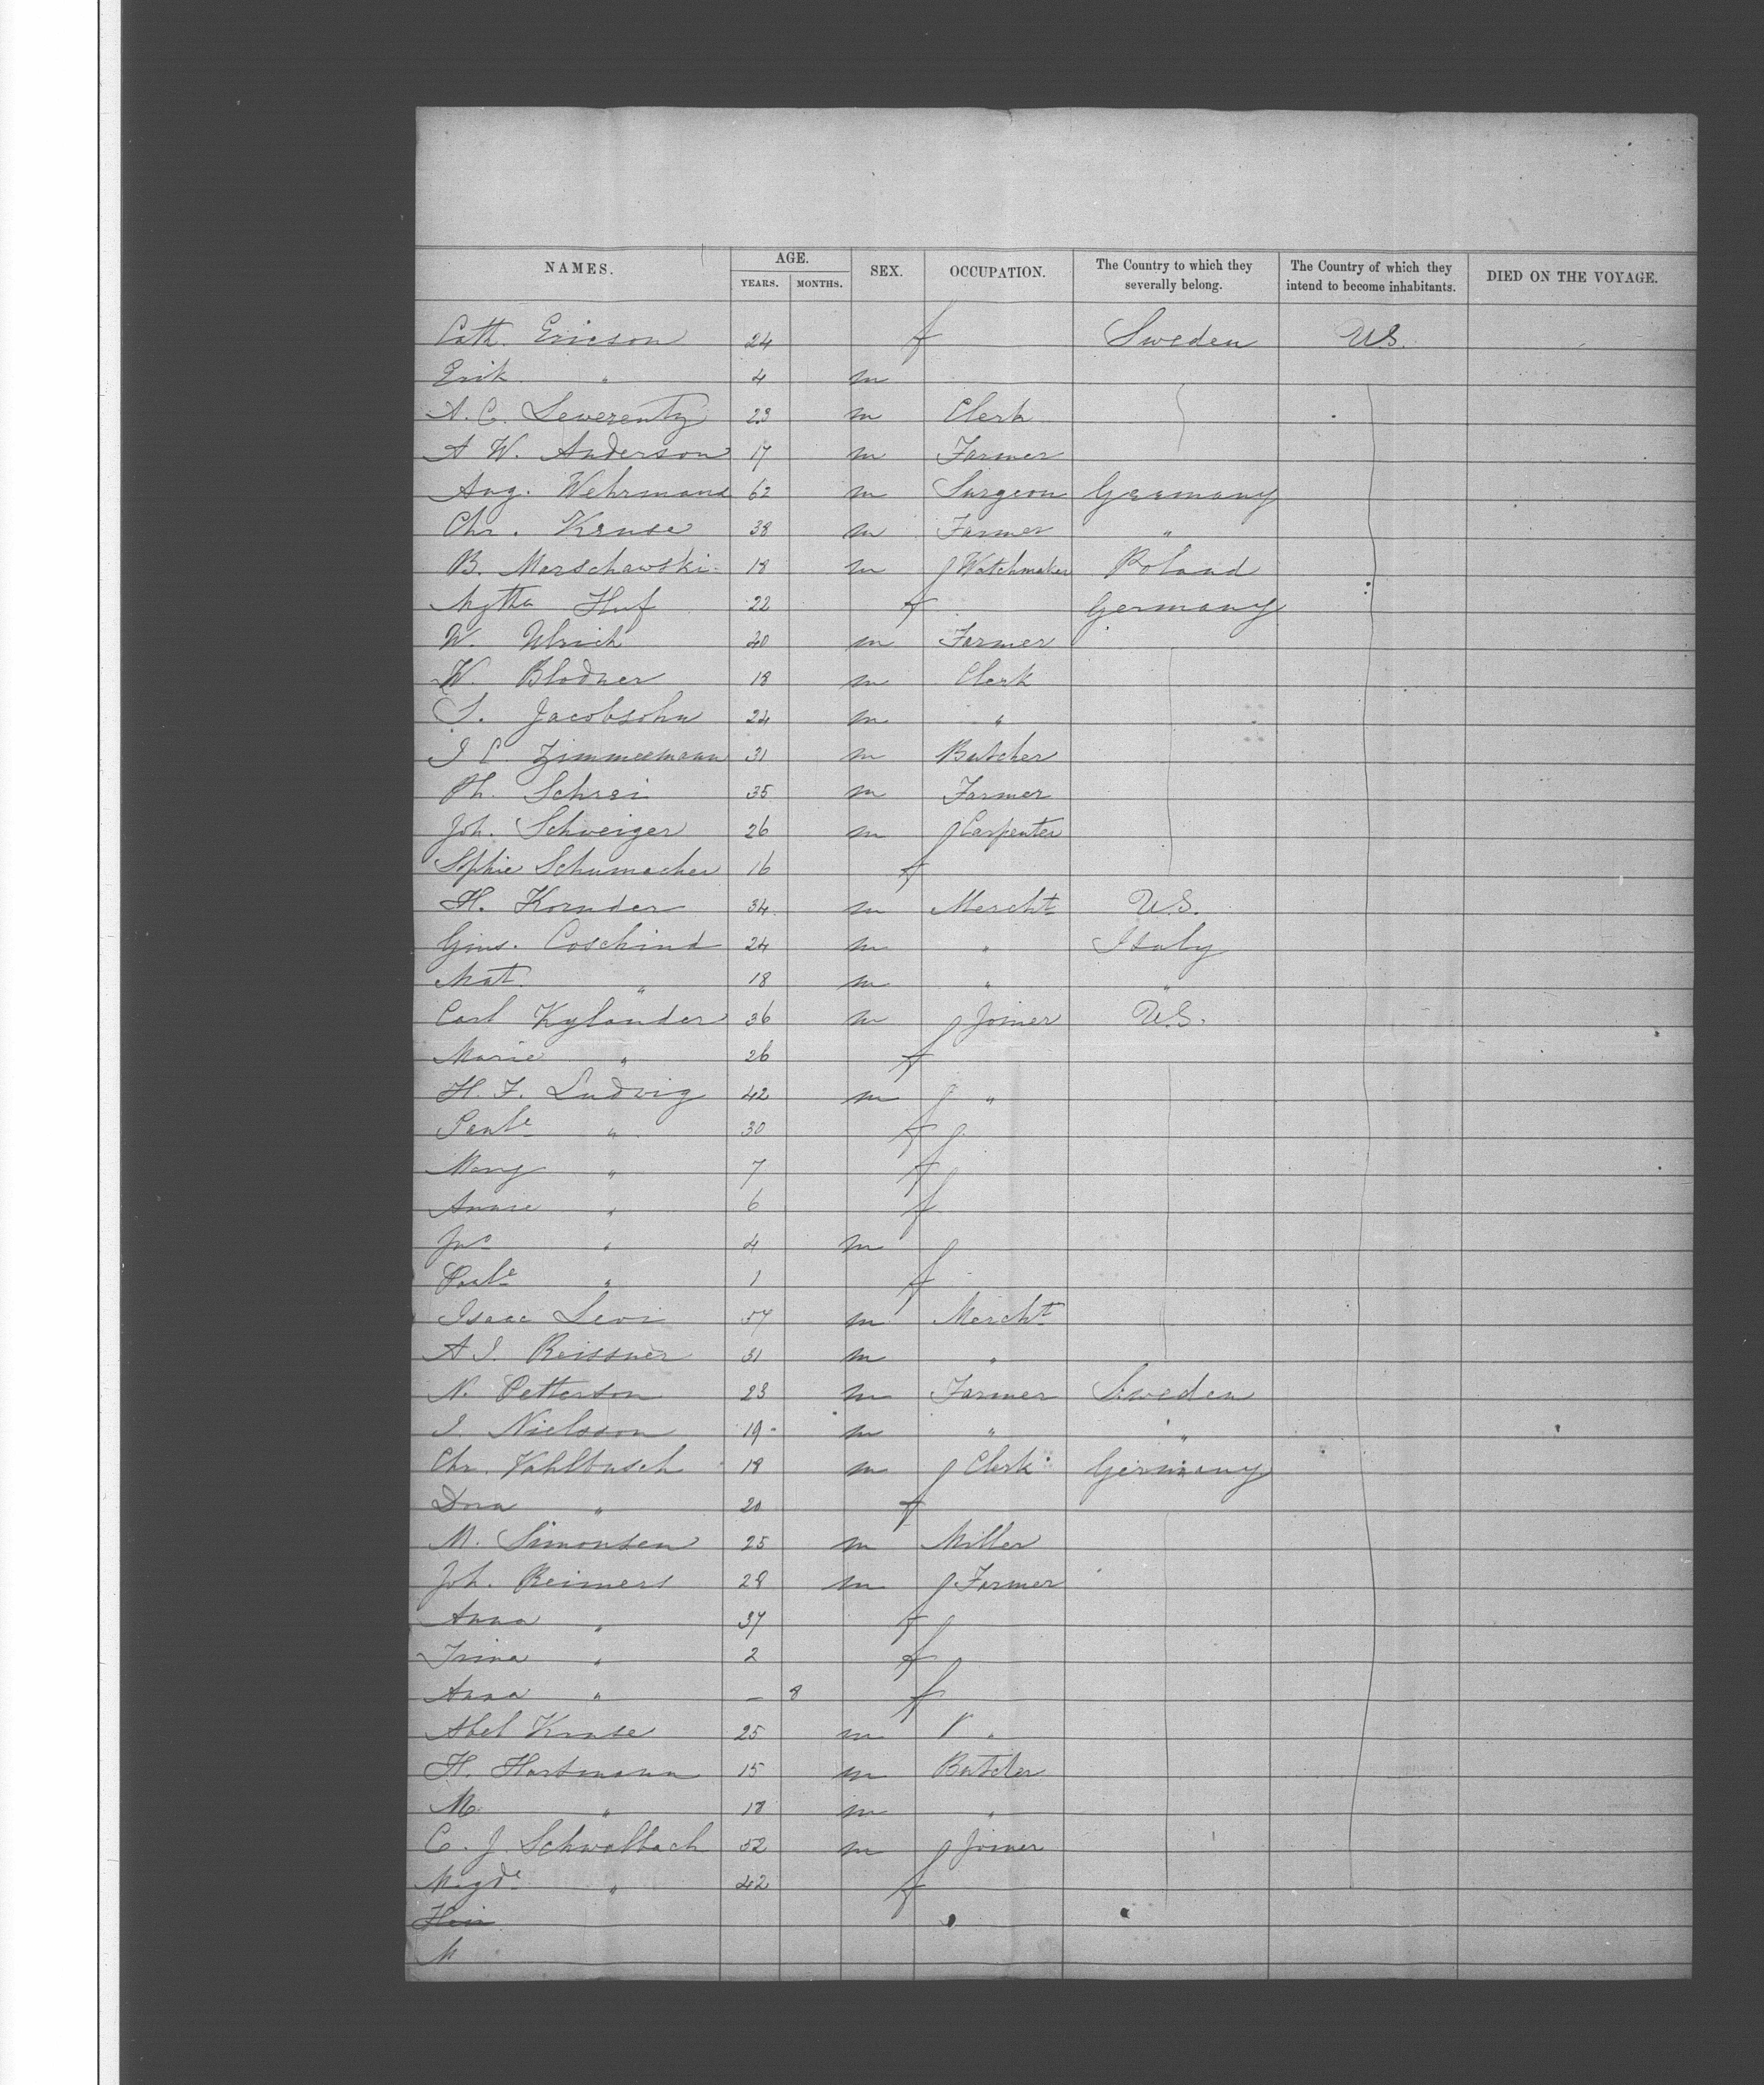 NAMES. AGE. SEX. OCCUPATION. The Country to which they severally belong. The Country of which they intend to become inhabitants. DIED ON THE VOYAGE.
YEARS. MONTHS.
Cath. Ericson 24 f Sweden U.S.
Erik " 4 m
A. C. Leverentz 23 m Clerk
A W. Anderson 17 m Farmer
Aug. Wehrmann 62 m Surgeon Germany
Chr. Kruse 38 m Farmer "
B. Marschawski 18 m Watchmaker Poland
Huf 22 f Germany
W. Ulrich 40 m Farmer
W. Blodner 18 m Clerk
S. Jacobsohn 24 m "
J C. Zimmermann 31 m Butcher
Ph. Schrei 35 m Farmer
Joh. Schweiger 26 m Carpenter
Sophie Schumacher 16 f
H. Kornder 34 m Mercht U.S.
Gius. Coschind 24 m " Italy
Mat. " 18 m " "
Carl Kylander 36 m Joiner U.S.
Marie " 26 f
H. F. Ludvig 42 m "
" 30 f
Mary " 7 f
Annie " 6 f
Jno " 4 m
" 1 f
Isaac Levi 57 m Mercht
A J. Reissner 31 m "
N. Petterson 23 m Farmer Sweden
J. Nielsson 19 m " "
Chr. Vahlbusch 18 m Clerk Germany
Dora " 20 f
M. Simonsen 25 m Miller
Joh. Reimers 28 m Farmer
Anna " 37 f
Trina " 2 f
Anna " – 8 f
Abel Kruse 25 m "
H. Hartmann 15 m Butcher
M. " 18 m "
C. J. Schwalbach 52 m Joiner
Magde " 42 f
Hein
M